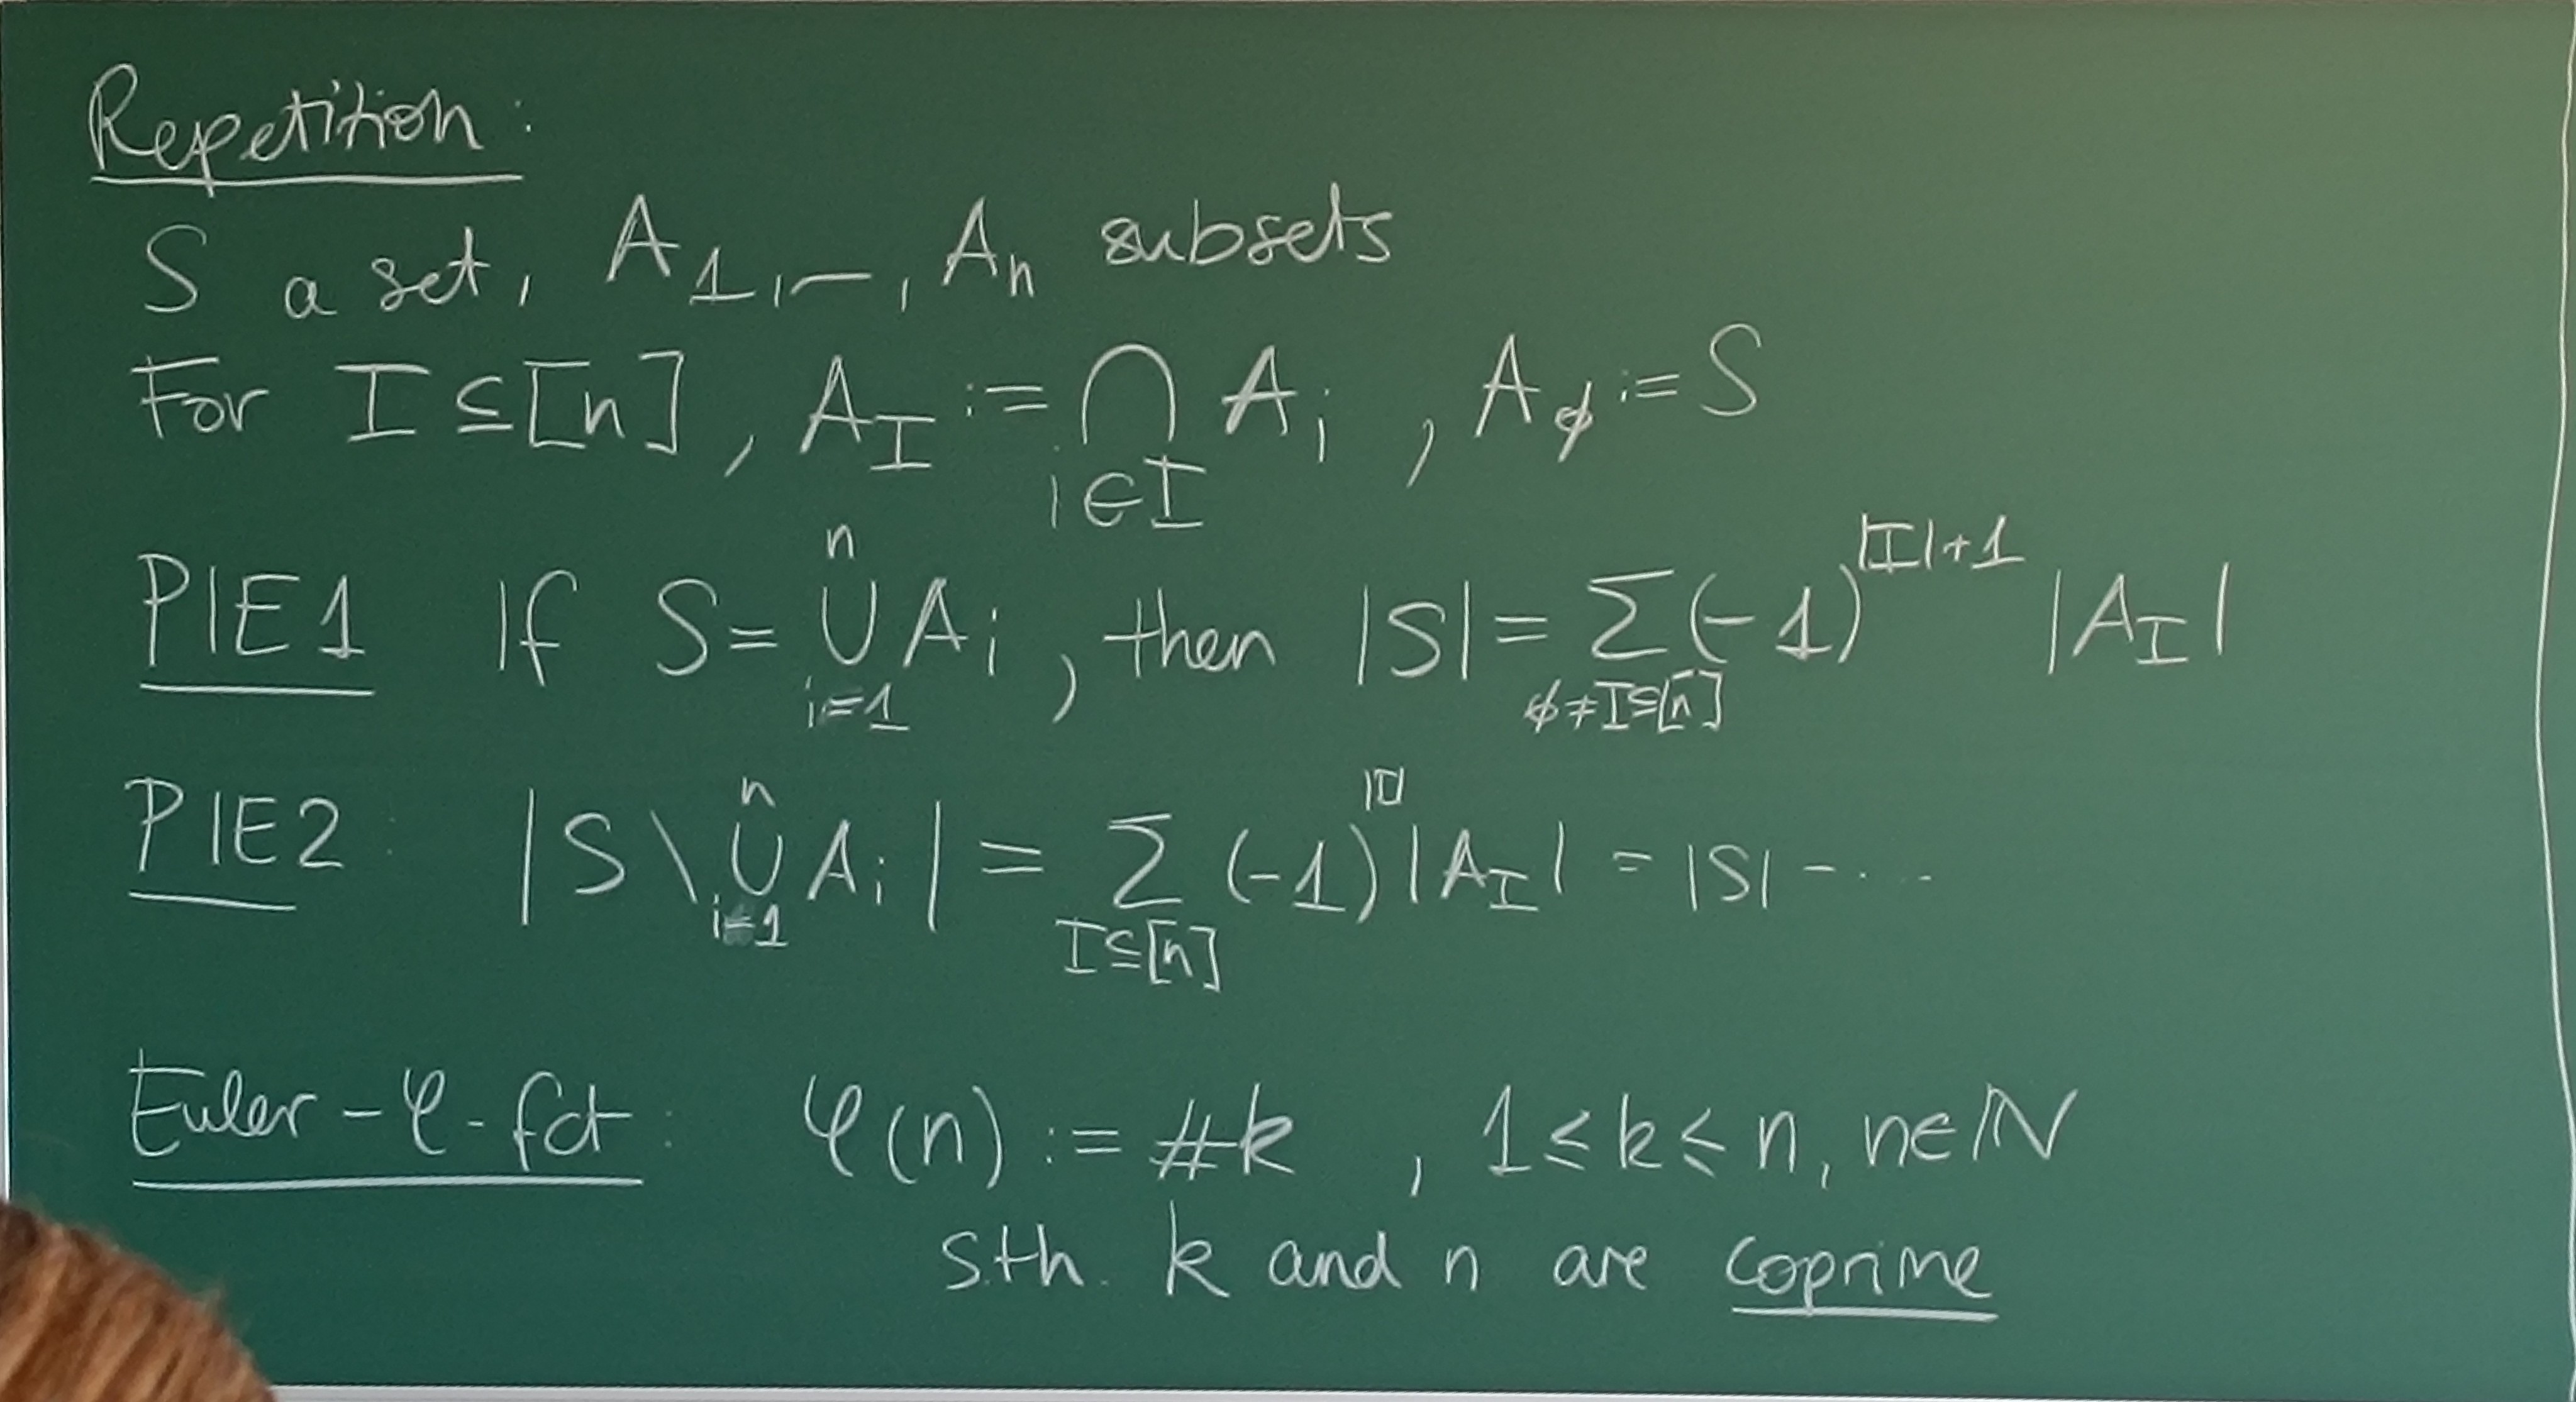 Repetition:
S a set, A₁,—, Aₙ subsets
For I ⊆ [n], A_I := ⋂_{i∈I} A_i , A_∅ := S
PIE1 If S = ⋃_{i=1}^{n} A_i , then |S| = ∑_{∅≠I⊆[n]} (-1)^{|I|+1} |A_I|
PIE2: |S \ ⋃_{i=1}^{n} A_i| = ∑_{I⊆[n]} (-1)^{|I|} |A_I| = |S| - ...
Euler-φ-fct: φ(n) := #k , 1 ≤ k ≤ n, n∈ℕ
s.th. k and n are coprime